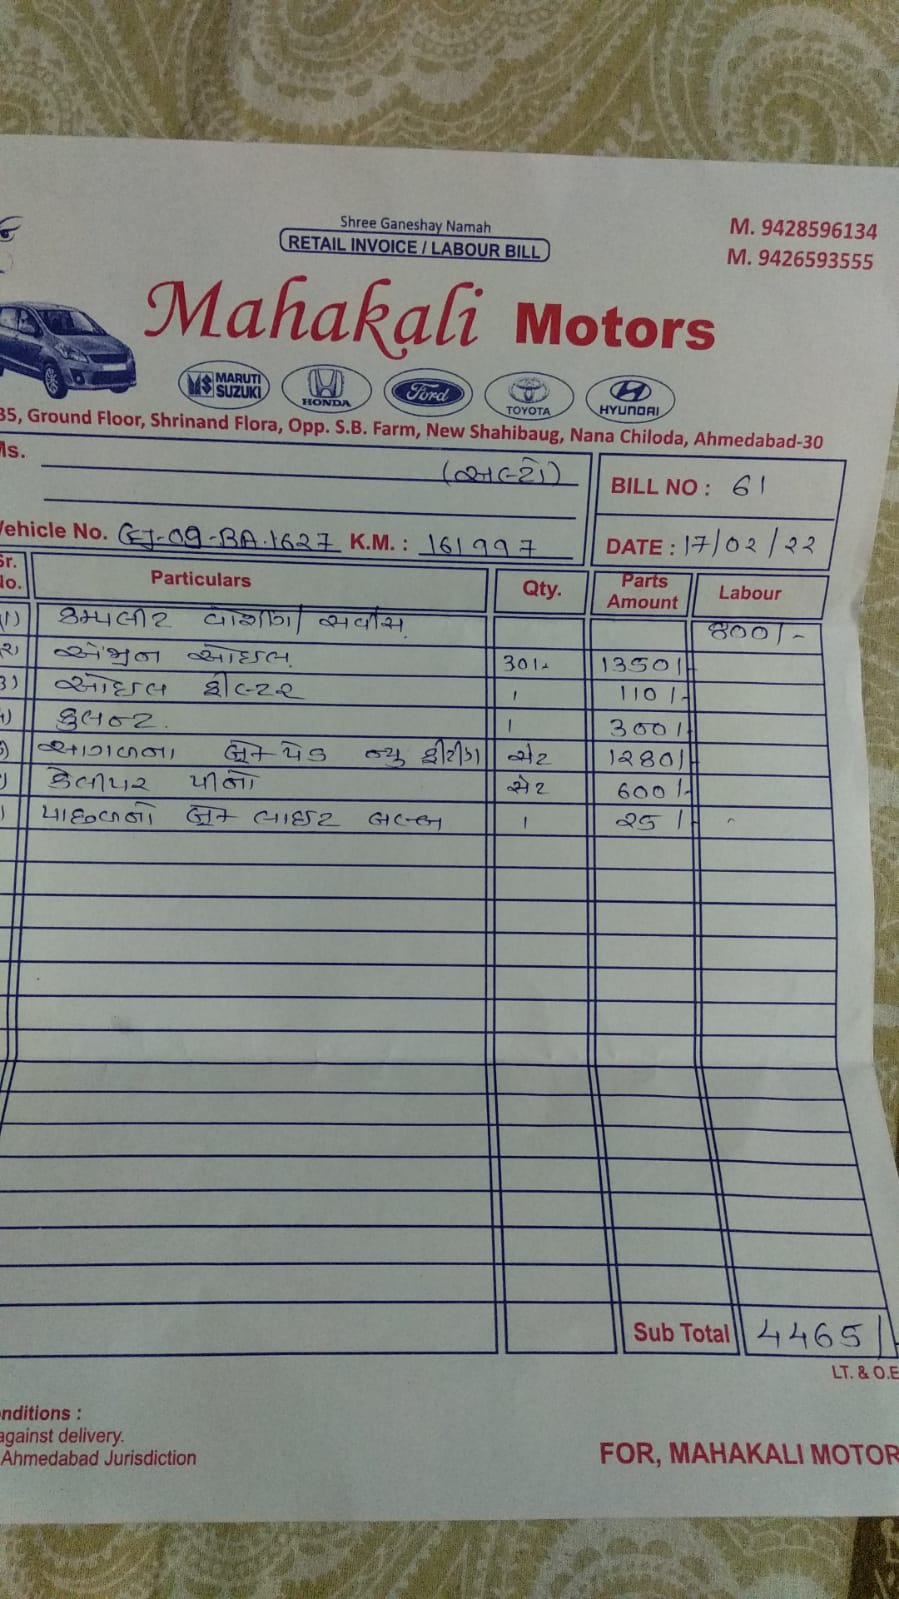 Shree Ganeshay Namah
RETAIL INVOICE / LABOUR BILL
M. 9428596134
M. 9426593555
Mahakali Motors
MARUTI SUZUKI HONDA Ford TOYOTA HYUNDAI
35, Ground Floor, Shrinand Flora, Opp. S.B. Farm, New Shahibaug, Nana Chiloda, Ahmedabad-30
Ms. (અલ્ટો) BILL NO : 61
Vehicle No. GJ-09-BA.1627 K.M. : 161997 DATE : 17/02/22
Sr. No. Particulars Qty. Parts Amount Labour
૧) કમ્પલીટ વોશીંગ/સર્વીસ 800/-
૨) એન્જીન ઓઇલ 1350/-
૩) ઓઇલ ફીલ્ટર 1 110/-
૪) કુલન્ટ. 1 300/-
આગળના બ્રેક પેડ ન્યુ ફીટીંગ સેટ 1280/-
કેલીપર પીનો સેટ 600/-
પાછળનો બ્રેક લાઇટ બલ્બ 1 25/-
Sub Total 4465/
LT. & O.E
onditions :
against delivery.
Ahmedabad Jurisdiction
FOR, MAHAKALI MOTOR